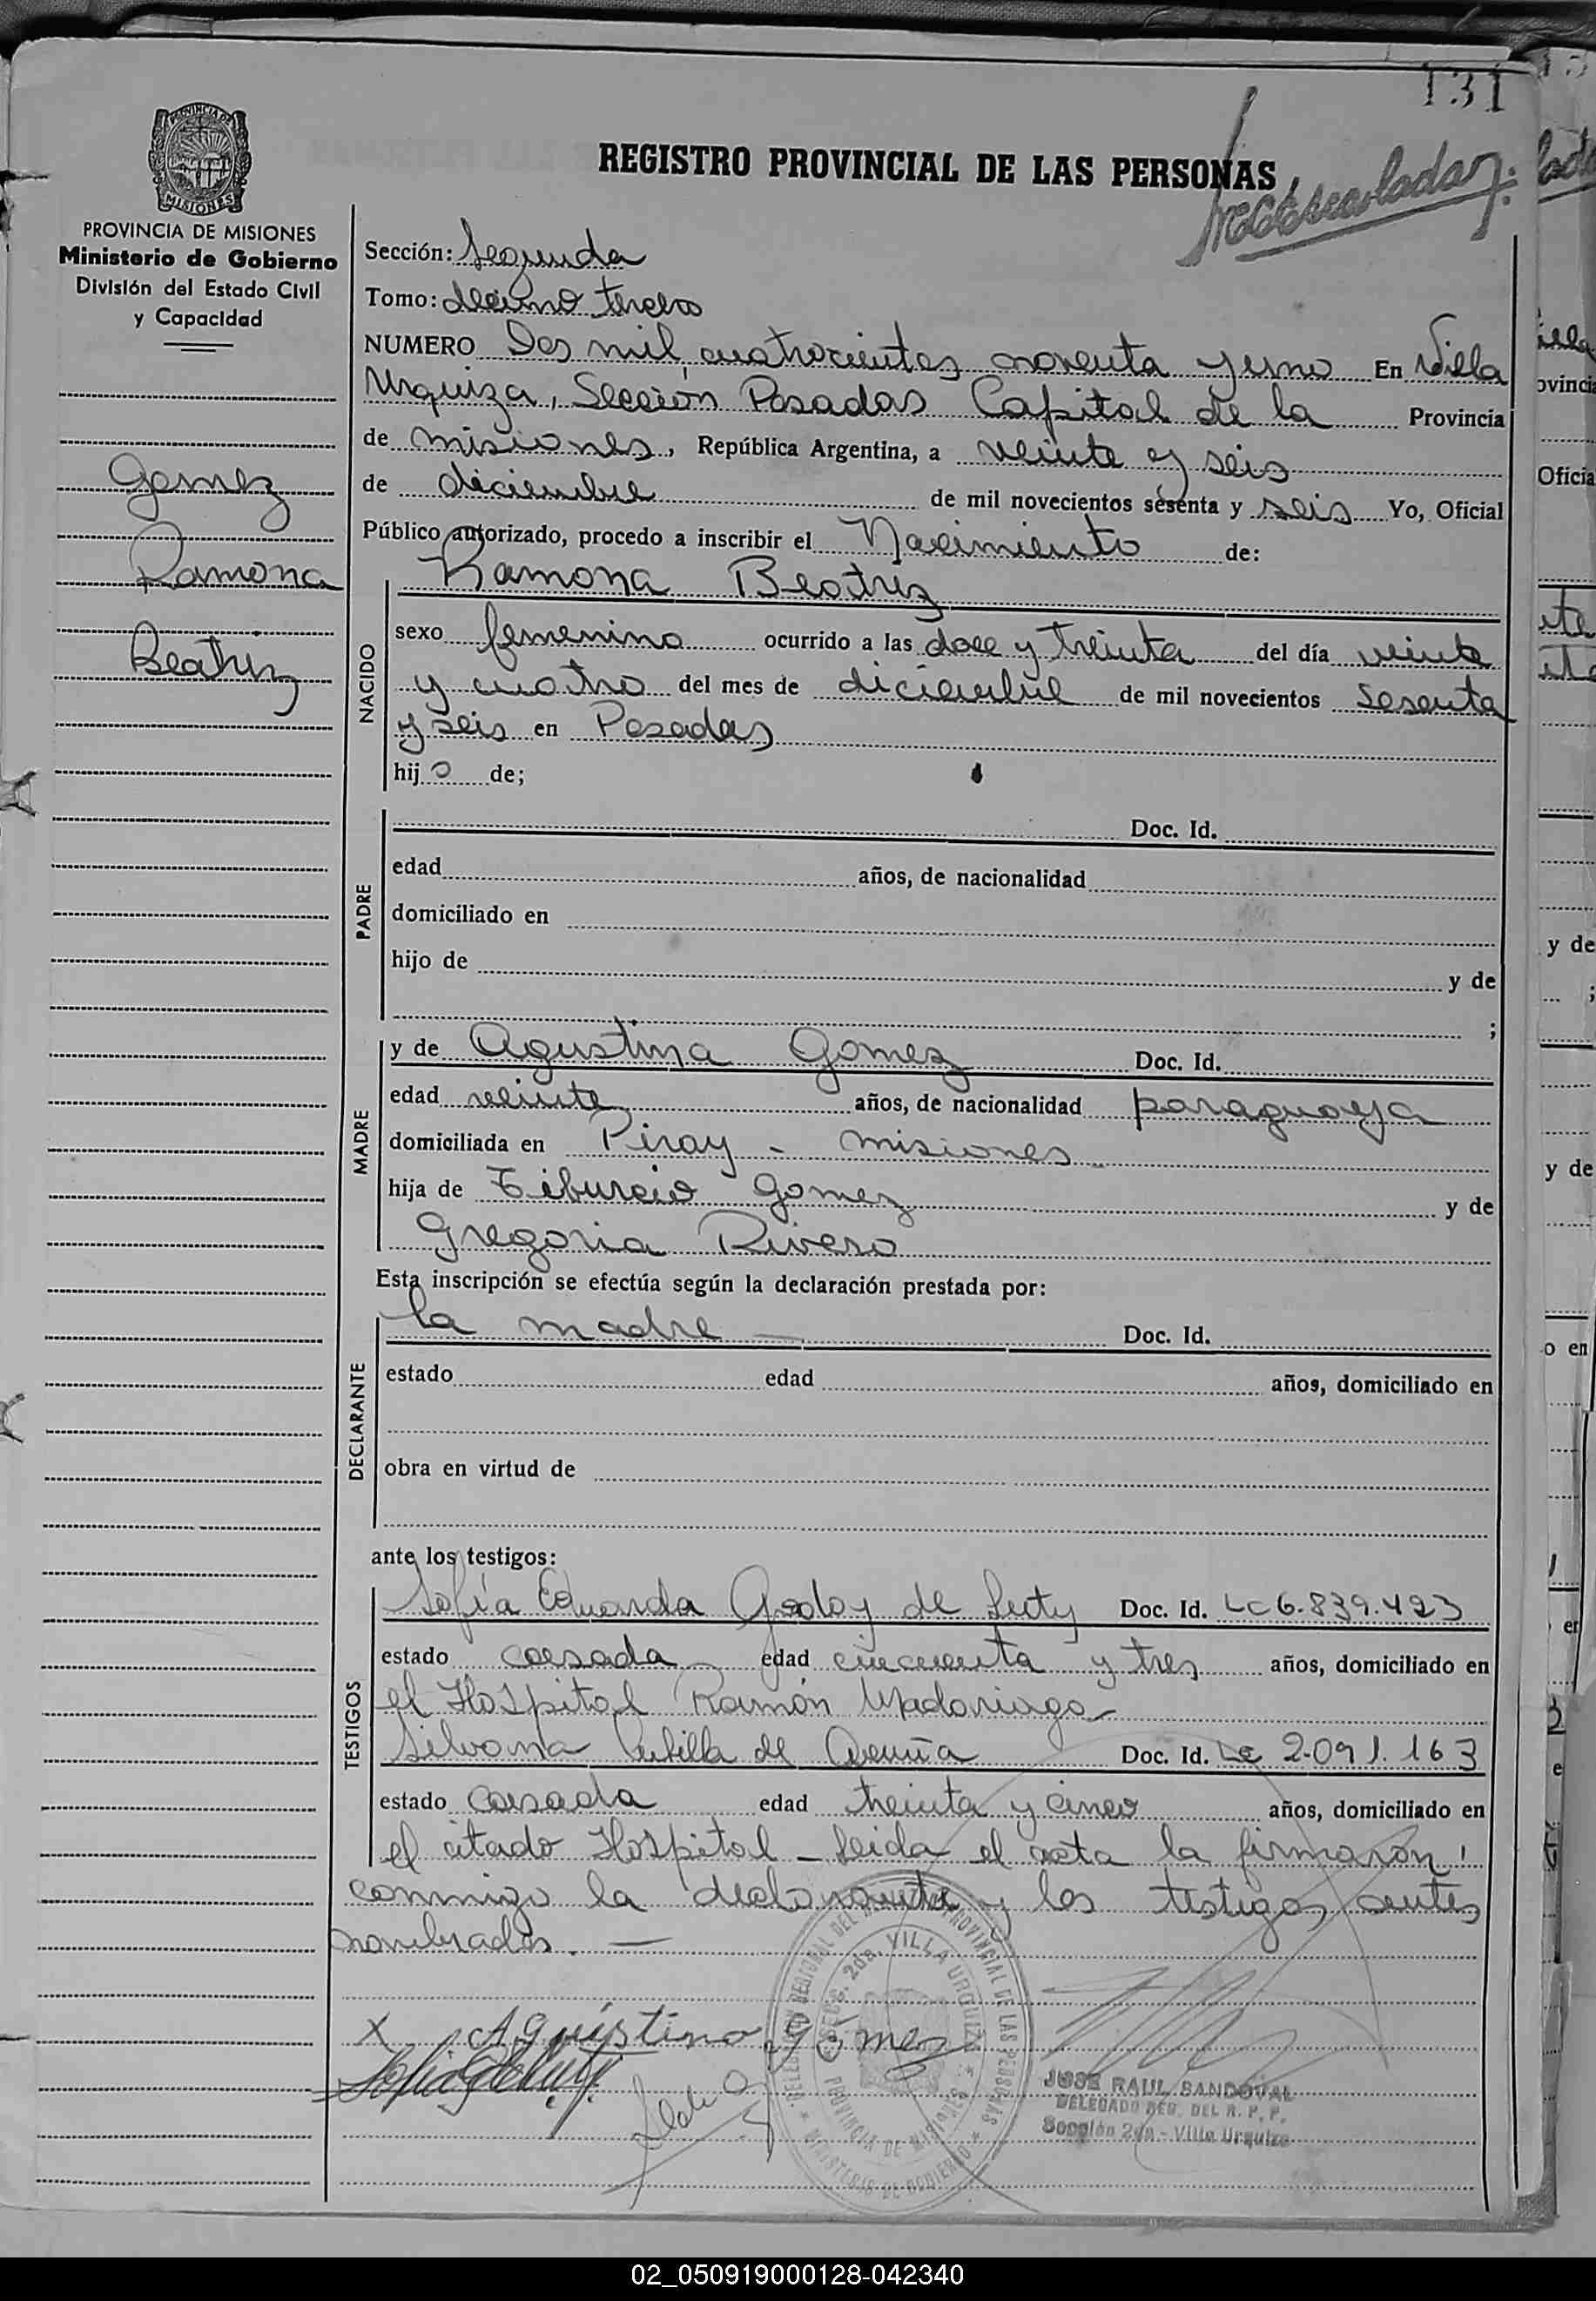 131
REGISTRO PROVINCIAL DE LAS PERSONAS
PROVINCIA DE
MISIONES
PROVINCIA DE MISIONES
Ministerio de Gobierno
División del Estado Civil
y Capacidad
Gomez
Ramona
Beatriz
Sección: Segunda
Tomo: decimo tercero
NUMERO Dos mil cuatrocientos noventa y uno En Villa
Urquiza, Sección Posadas Capital de la Provincia
de misiones, República Argentina, a veinte y seis
de diciembre de mil novecientos sesenta y seis Yo, Oficial
Público autorizado, procedo a inscribir el Nacimiento de:
NACIDO
Ramona Beatriz
sexo femenino ocurrido a las doce y treinta del día veinte
y cuatro del mes de diciembre de mil novecientos sesenta
y seis en Posadas
hij a de;
PADRE
Doc. Id.
edad años, de nacionalidad
domiciliado en
hijo de y de
;
MADRE
y de Agustina Gomez Doc. Id.
edad veinte años, de nacionalidad paraguaya
domiciliada en Piray - misiones
hija de Tiburcio Gomez y de
Gregoria Rivero
Esta inscripción se efectúa según la declaración prestada por:
DECLARANTE
la madre — Doc. Id.
estado edad años, domiciliado en
obra en virtud de
ante los testigos:
TESTIGOS
Sofía Eduarda Godoy de Doc. Id. LC 6.839.423
estado casada edad cincuenta y tres años, domiciliado en
el Hospital Ramón Madariaga
Silvana de Acuña Doc. Id. LC 2.091.163
estado casada edad treinta y cinco años, domiciliado en
el citado Hospital - leida el acta la firmaron
conmigo la declarante y los testigos antes
nombrados. —
X Agustina gomez
DELEGACION REGIONAL DEL REGISTRO PROVINCIAL DE LAS PERSONAS
SECC. 2da. VILLA URQUIZA
PROVINCIA DE MISIONES
MINISTERIO DE GOBIERNO
JOSE RAUL SANDOVAL
DELEGADO REG. DEL R. P. P.
Sección 2da - Villa Urquiza
02_050919000128-042340